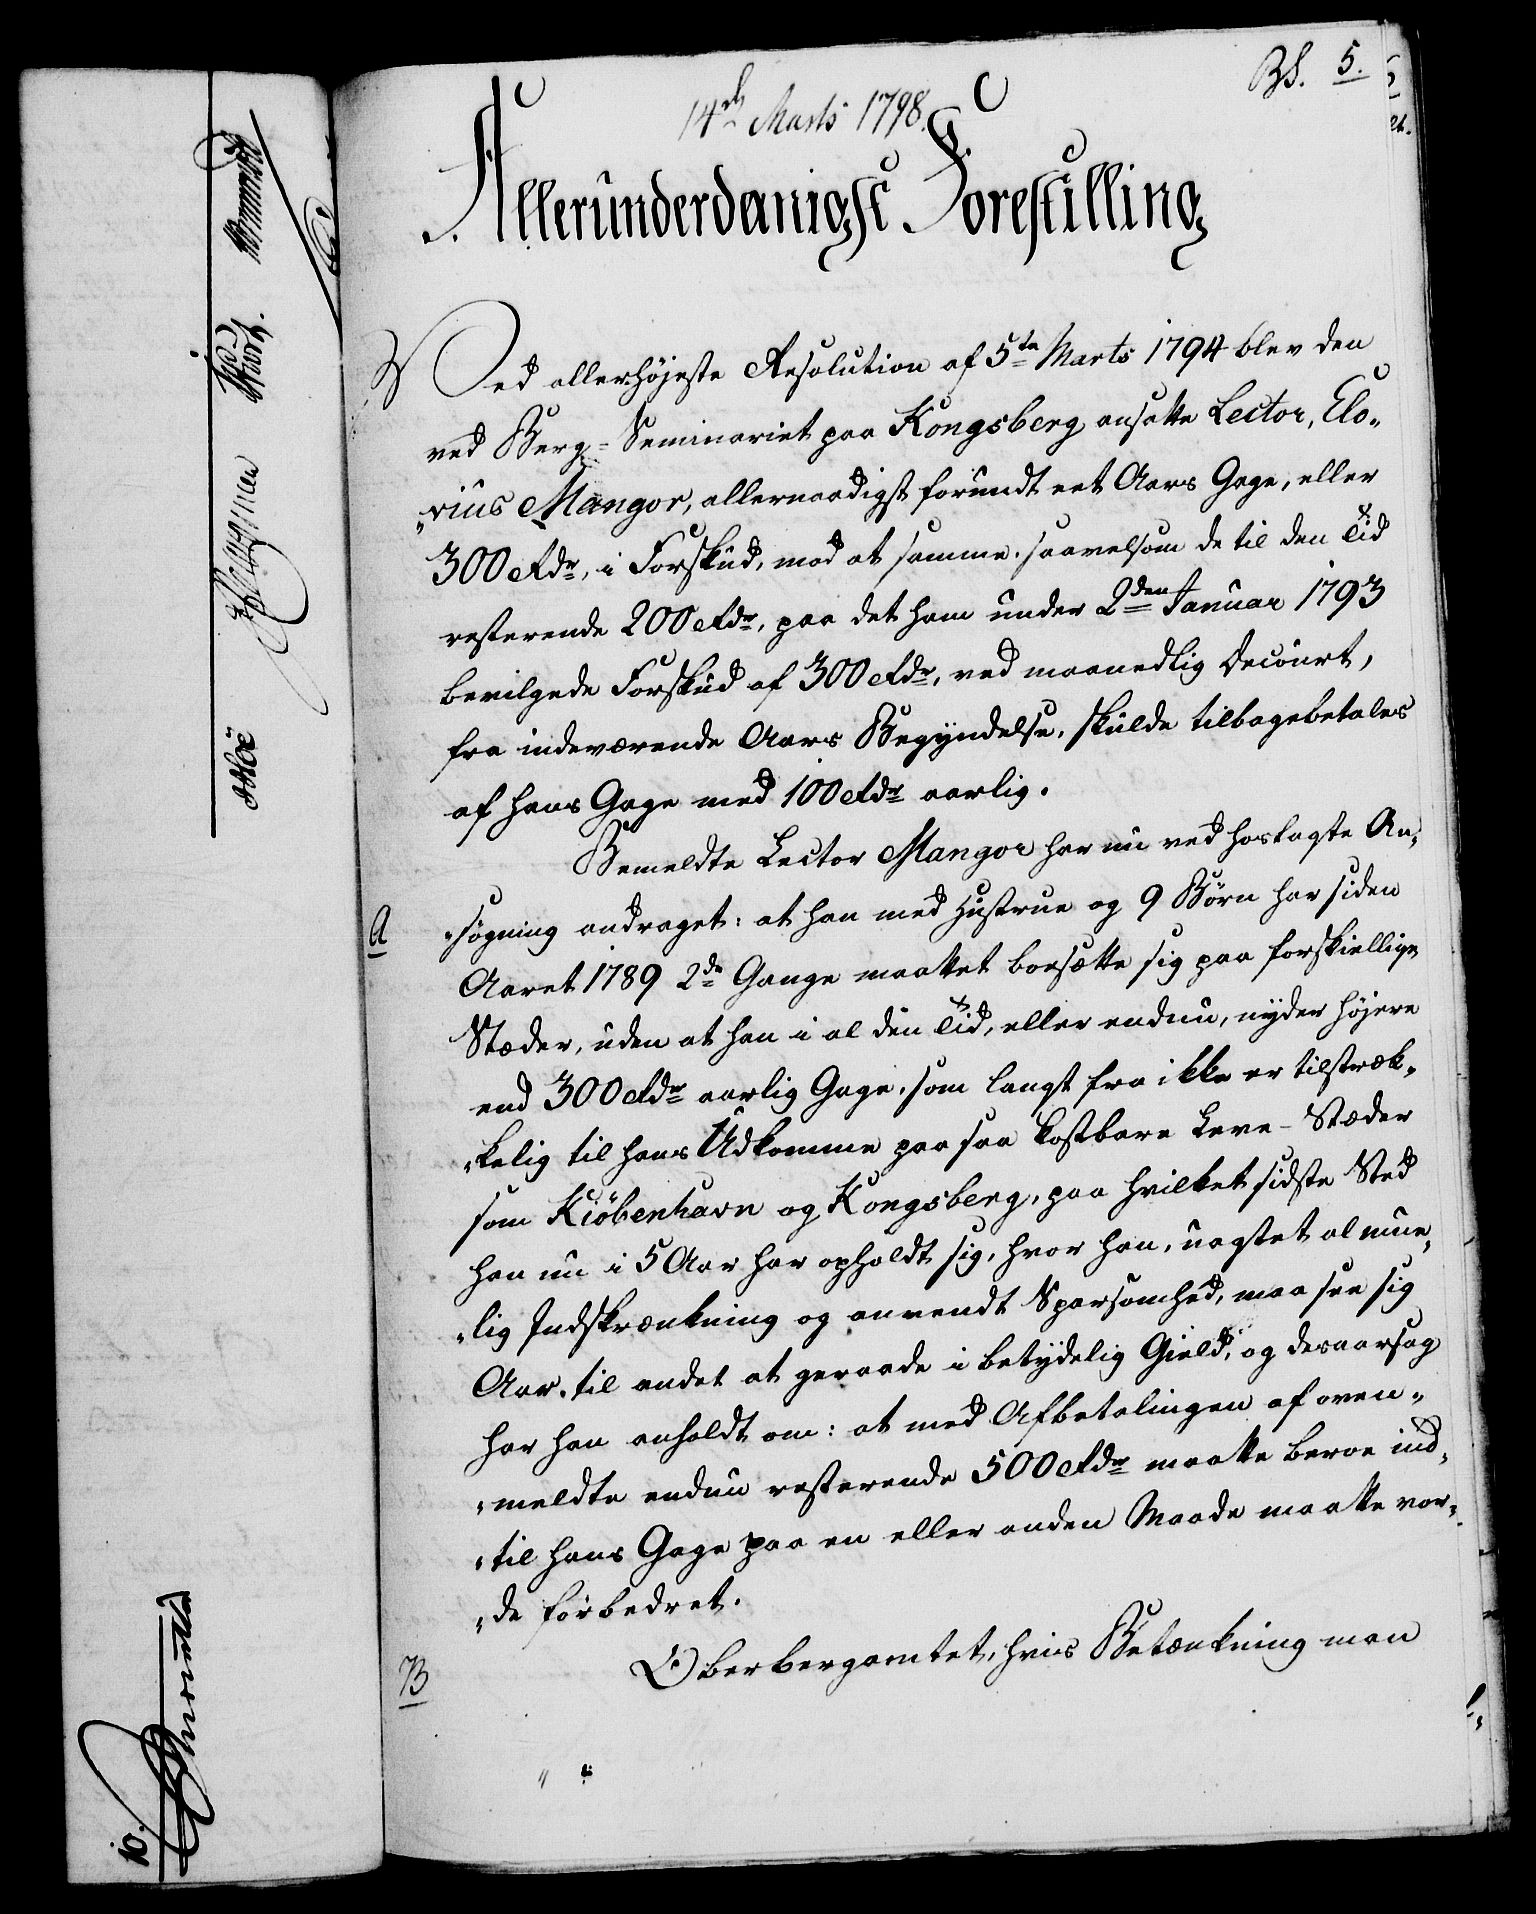 BS. 5.
14de Marts 1798.
Allerunderdanigst Forestilling
Ved allerhøjeste Resolution af 5te Marts 1794 blev den
ved Berg-Seminariet paa Kongsberg ansatte Lector, Elo-
"vius Mangor, allernaadigst forundt eet Aars Gage, eller
300 Rdr, i Forskud, mod at samme, saavelsom de til den Tid
resterende 200 Rdr, paa det ham under 2den Januar 1793
bevilgede Forskud af 300 Rdr, ved maanedlig Decourt,
fra indeværende Aars Begyndelse, skulde tilbagebetales
af hans Gage med 100 Rdr aarlig.
Bemeldte Lector Mangor har nu ved hoslagte An-
A
"søgning andraget: at han med Hustrue og 9 Børn har siden
Aaret 1789 2de Gange maattet bosætte sig paa forskiellige
Stæder, uden at han i al den Tid, eller endnu, nyder højere
end 300 Rdr aarlig Gage, som langt fra ikke er tilstræk-
"kelig til hans Udkomme paa saa kostbare Leve-Stæder
som Kiøbenhavn og Kongsberg, paa hvilket sidste Sted
han nu i 5 Aar har opholdt sig, hvor han, uagtet al mue-
"lig Indskrænkning og anvendt Sparsomhed, maa see sig
Aar til andet at geraade i betydelig Gield, og desaarsag
har han anholdt om: at med Afbetalingen af oven-
"meldte endnu resterende 500 Rdr maatte beroe ind-
"til hans Gage paa en eller anden Maade maatte vor-
"de forbedret.
B
Oberbergamtet, hvis Betænkning man
10.